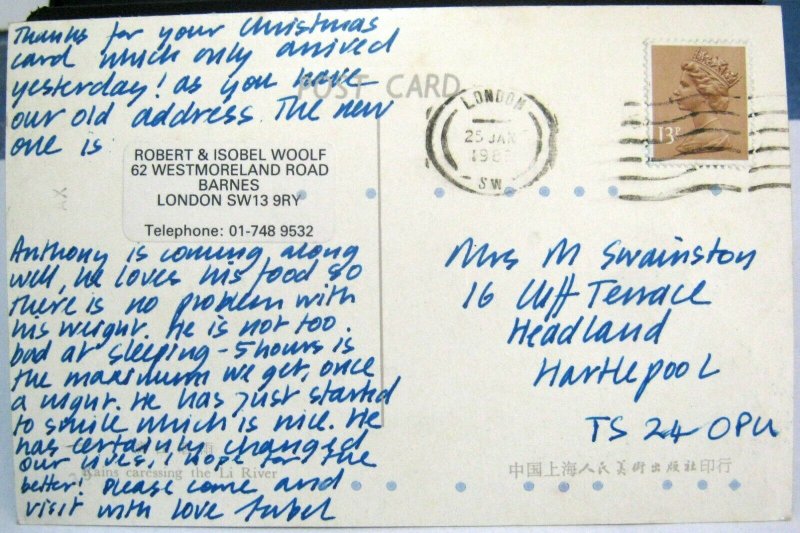 Thanks for your Christmas
card which only arrived
yesterday! as you have
our old address. The new
one is
POST CARD
ROBERT & ISOBEL WOOLF
62 WESTMORELAND ROAD
BARNES
LONDON SW13 9RY
Telephone: 01-748 9532
Anthony is coming along
well, he loves his food so
there is no problem with
his weight. He is not too
bad at sleeping - 5 hours is
the maximum we get, once
a night. He has just started
to smile which is nice. He
has certainly changed
our lives, I hope for the
better! Please come and
visit with love Isobel
Rains caressing the Li River
LONDON
25 JAN
SW
13P
Mrs M Swainston
16 Cliff Terrace
Headland
Hartlepool
TS 24 0PU
中国上海人民美术出版社印行